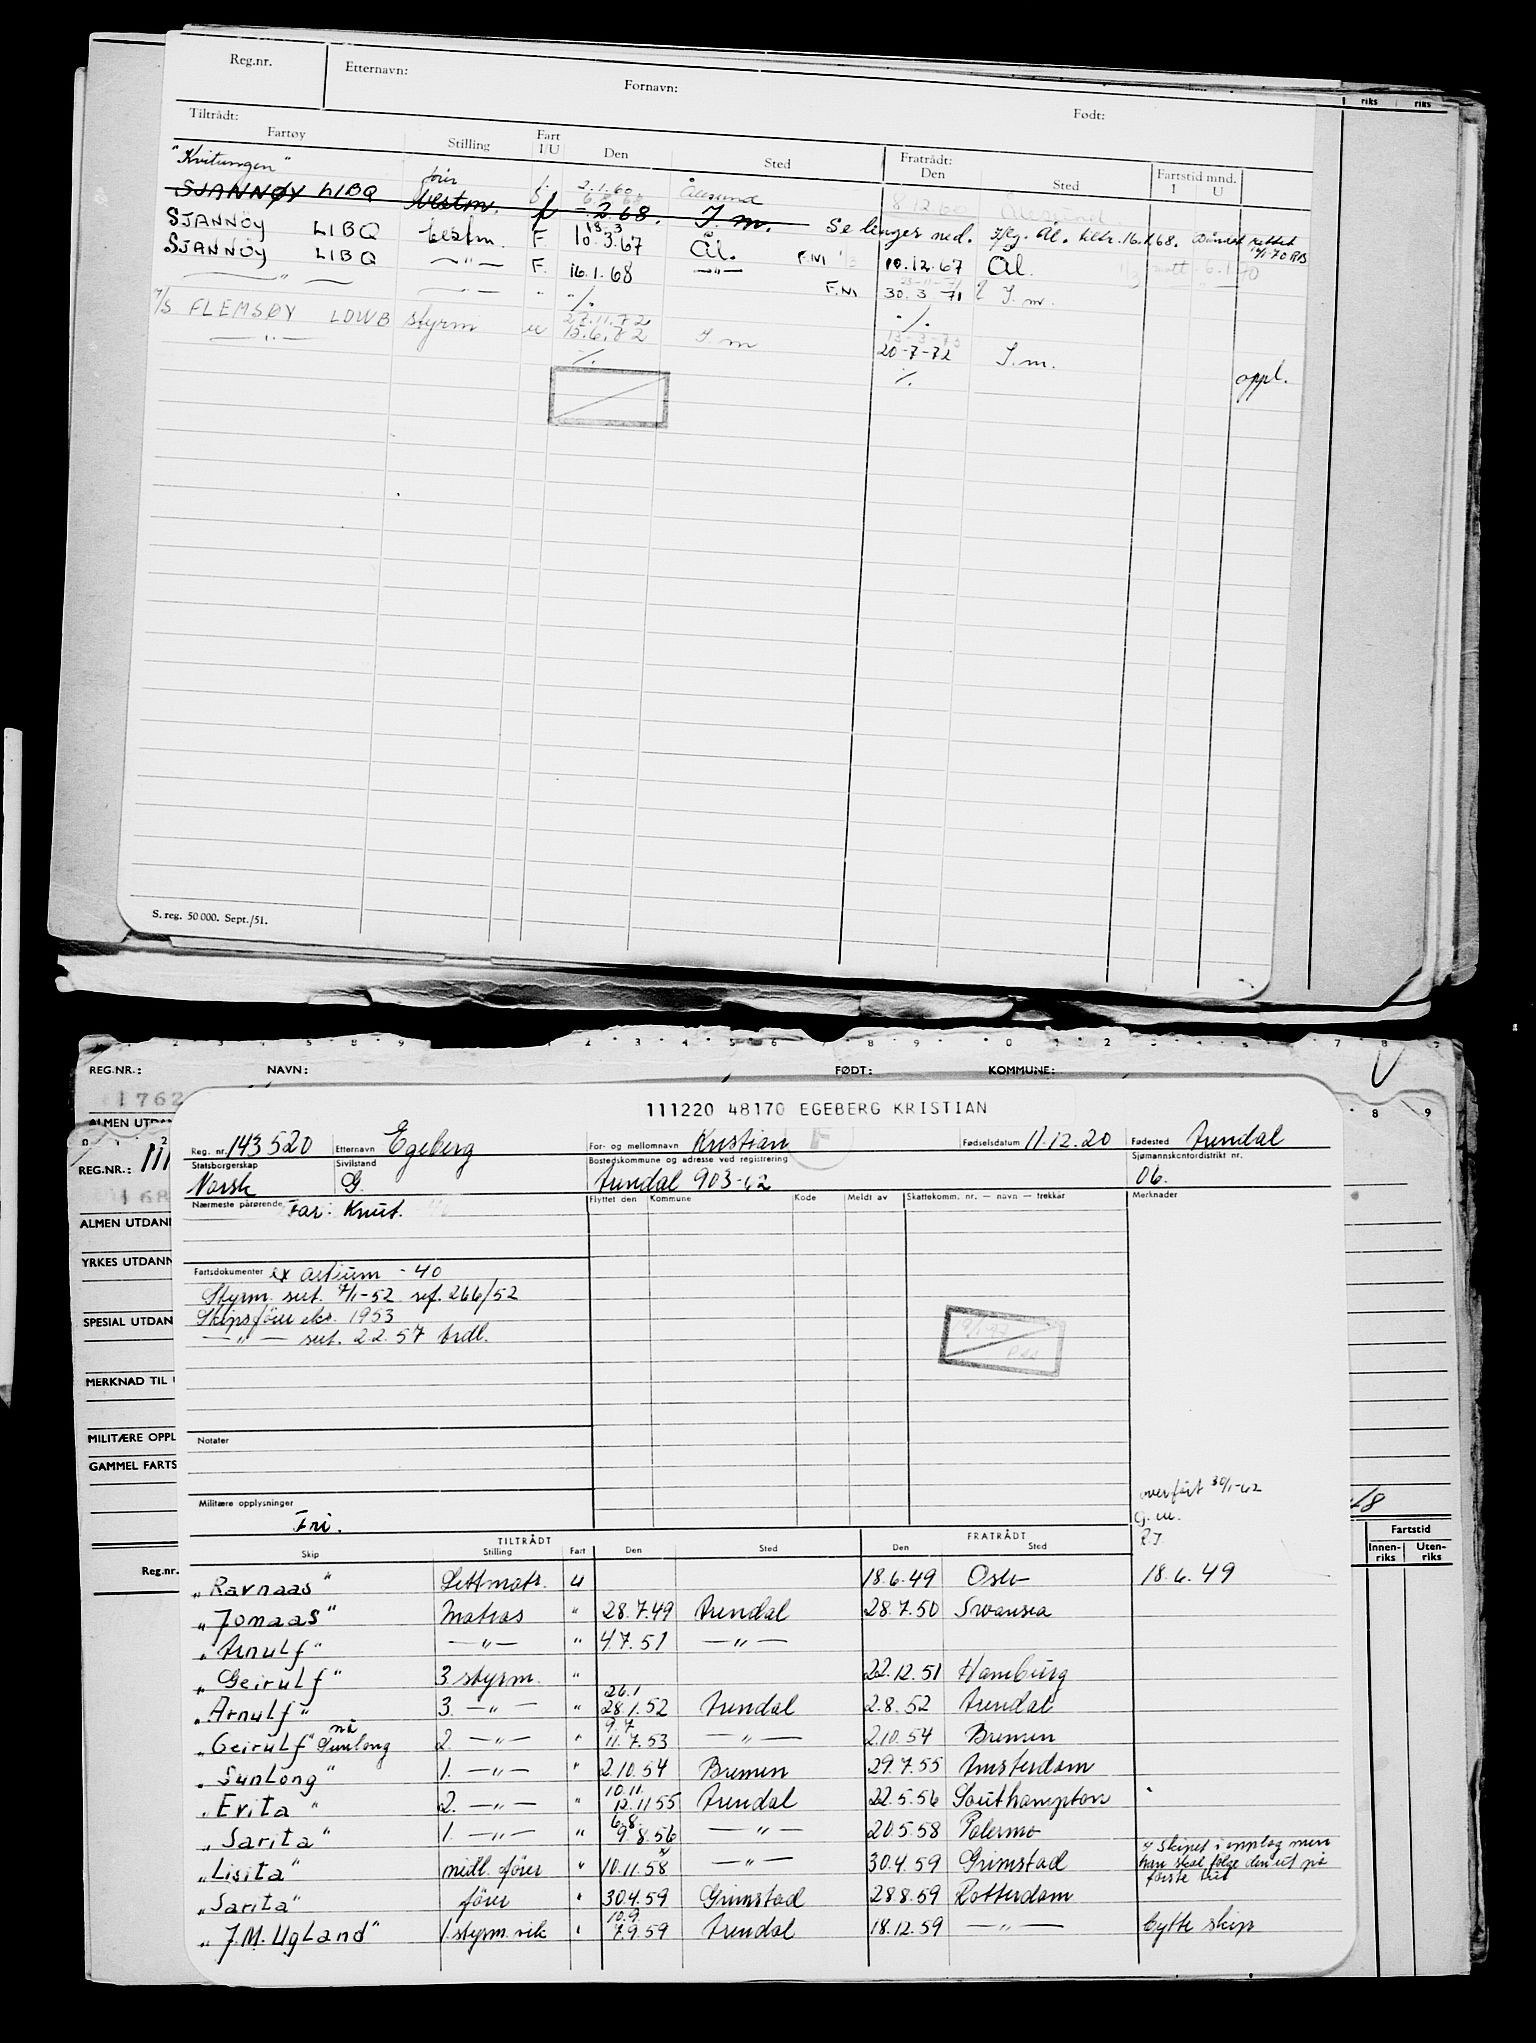 riks riks
Reg.nr. Etternavn: Fornavn: Født:
Tiltrådt: Fratrådt:
Fartøy Stilling Fart I/U Den Sted Den Sted Fartstid mnd. I U
"Kvitungen" fører f. 2.1.60 Ålesund 8.12.60 Ålesund
SJANNØY LIBQ bestm. f -.2.68. I.m. Se lenger ned.
18.3
SJANNÖY LIBQ bestm. F. 10.3.67 Ål. F.M 10.12.67 Ål.
SJANNÖY LIBQ —"— F. 16.1.68 —"— F.M 30.3 71 I.m.
—"— —"— " ./. ./.
27.11.72
M/S FLEMSØY LDWB styrm u 15.6.72 I m 20-7-72 I.m.
—"— ./. ./. oppl.
S. reg. 50 000. Sept./51.
REG.NR.: NAVN: FØDT: KOMMUNE:
1762
ALMEN UTDAN
REG.NR.: 111
168
ALMEN UTDAN
YRKES UTDANN
SPESIAL UTDAN
MERKNAD TIL
MILITÆRE OPPL
GAMMEL FARTS
Reg.nr.
Fartstid
Innen-riks Uten-riks
111220 48170 EGEBERG KRISTIAN
Reg. nr. 143520 Etternavn Egeberg For- og mellomnavn Kristian Fødselsdatum 11.12.20 Fødested Arendal
Statsborgerskap Norsk Sivilstand G. Bostedskommune og adresse ved registrering Arendal 903-62 Sjømannskontordistrikt nr. 06.
Nærmeste pårørende Far: Knut. Flyttet den Kommune Kode Meldt av Skattekomm. nr. — navn — trekkår Merknader
Fartsdokumenter ex artium -40
Styrm. sert. 4/1-52 ref. 266/52
Skipsfører eks. 1953
—"— sert. 2.2.57 Ardl.
Notater
overført 30/1-62
G.M.
R.T.
Militære opplysninger
Fri.
TILTRÅDT FRATRÅDT
Skip Stilling Fart Den Sted Den Sted
"Ravnaas" Lettmatr. U 18.6.49 Oslo 18.6.49
"Jomaas" Matros " 28.7.49 Arendal 28.7.50 Swansea
"Arnulf" —"— " 4.7.51 —"—
"Geirulf" 3 styrm. " 22.12.51 Hamburg
26.1
"Arnulf" 3. —"— " 28.1.52 Arendal 2.8.52 Arendal
9.7
"Geirulf" nå Sunlong 2. —"— " 11.7.53 —"— 2.10.54 Bremen
"Sunlong" 1. —"— " 2.10.54 Bremen 29.7.55 Amsterdam
10.11.
"Evita" 2. —"— " 12.11 55 Arendal 22.5.56 Southampton
6.8.
"Sarita" 1. —"— " 9.8.56 —"— 20.5.58 Palermo
"Lisita" midl. fører " 10.11.58 x —"— 30.4.59 Grimstad x Skipet i opplag men han skal følge den ut på første tur
"Sarita" fører " 30.4.59 Grimstad 28.8.59 Rotterdam
10.9
"J.M. Ugland" 1. styrm. vik " 7.9.59 Arendal 18.12.59 —"— bytte skip